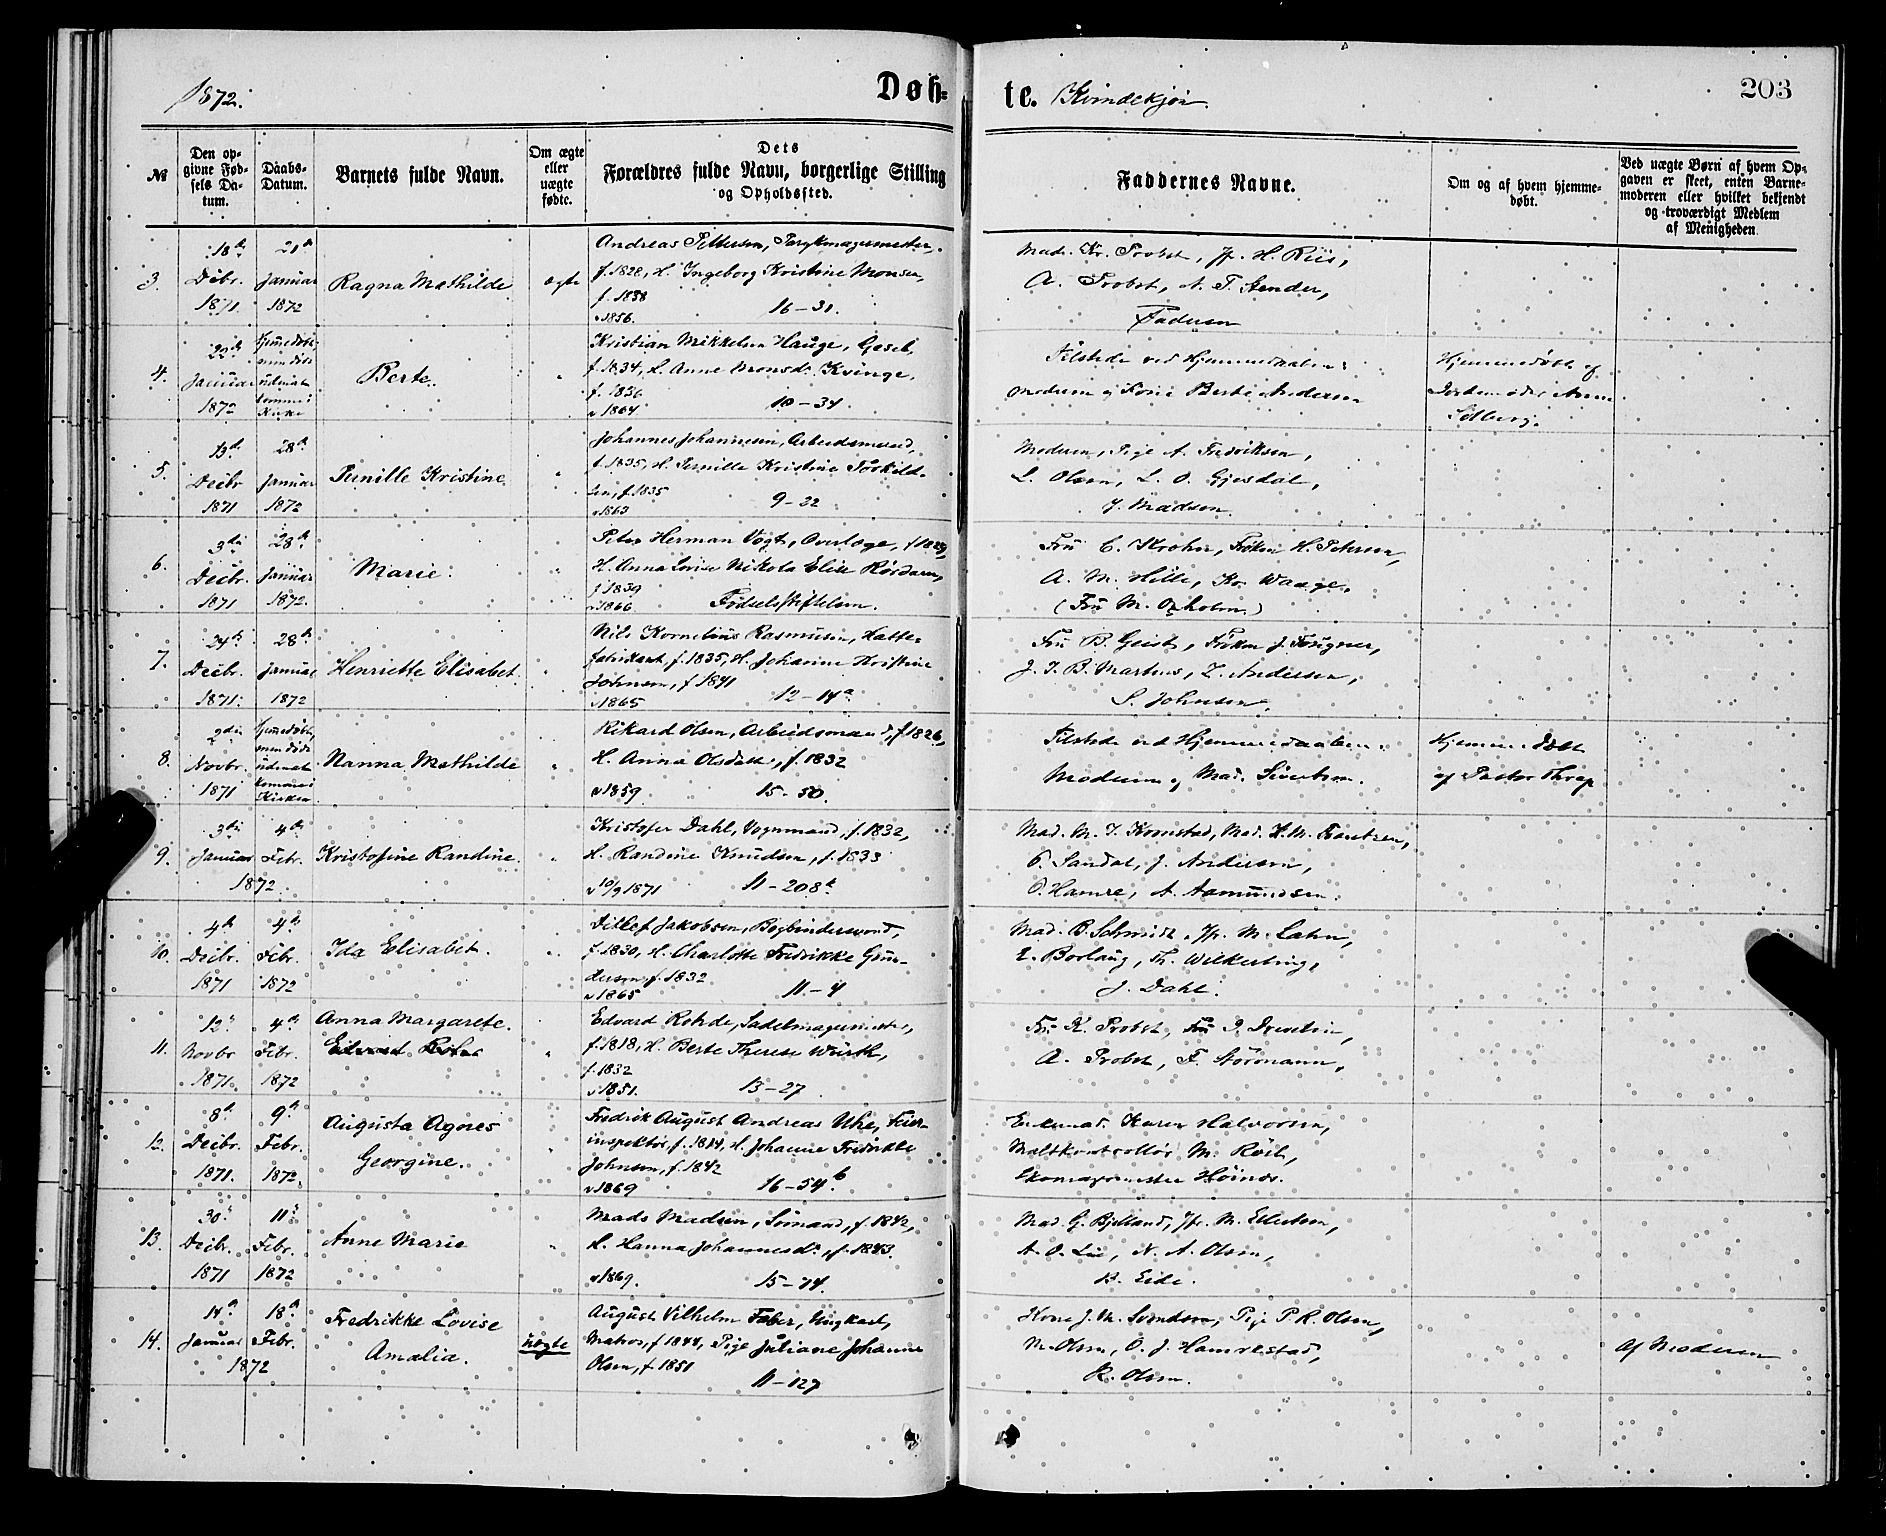 1872.
Døb=
te. Kvindekjøn.
203
№
Den op-
givne Fød-
sels Da-
tum.
Daabs-
Datum.
Barnets fulde Navn.
Om ægte
eller
uægte
fødte.
Dets
Forældres fulde Navn, borgerlige Stilling
og Opholdssted.
Faddernes Navne.
Om og af hvem hjemme-
døbt.
Ved uægte Børn af hvem Op-
gaven er skeet, enten Barne-
moderen eller hvilket bekjendt
og troværdigt Medlem
af Menigheden.
3.
18de
Decbr.
1871.
21de
Januar
1872
Ragna Mathilde
ægte
Andreas Pettersen, Parykmagermester,
f. 1828, H. Ingeborg Kristine Monsen,
f. 1838
v 1856. 16-31.
Mad. Kr. Probst, Jfr. H. Riis,
A. Probst, A. T. Stender,
Faderen
4.
29de
Januar
1872
Hjemedøbt,
men døde
uden at
komme i
Kirke
Berte.
"
Kristian Mikkelsen Hauge, Gesel,
f. 1834, H. Anne Monsdr. Kvinge,
f. 1836
v 1864 10-34.
Tilstede ved Hjemmedaaben:
Moderen og Kone Berte Andersen
Hjemmedøbt af
Jordemoder
Solberg.
5.
13de
Decbr
1871
28de
Januar
1872
Pernille Kristine
"
Johannes Johannesen, Arbeidsmand,
f. 1835, H. Pernille Kristine Torkild-
sen, f. 1835
v 1863 9-22
Moderen, Pige A. Fredriksen,
L. Olsen, L. O. Gjesdal,
J. Madsen.
6.
3die
Decbr.
1871
28de
Januar
1872.
Marie.
"
Peter Herman Vogt, Overlæge, f 1829,
H. Anna Lovise Nikola Elise Rosdaren,
f 1839
v 1866 Fødselsstiftelsen.
Fru C. Krohn, Frøken H. Petersen,
A. M. Hille, Kr. Waage.
(Fru M. Oxholm.)
7.
24de
Decbr.
1871.
28de
Januar
1872
Henriette Elisabet.
"
Nils Kornelius Rasmussen, Hatte-
fabrikant, f. 1835, H. Johanne Kristine
Johnsen, f 1841
v 1865 12-14a
Fru B. Geist, Frøken J. Fosigner,
J. J. B. Martens, Z. Andersen,
S. Johnsen.
8.
2den
Novbr.
1871
Hjemedøbt,
men døde
uden at
komme i
Kirken
Nanna Mathilde
"
Rikard Olsen, Arbeidsmand, f 1826,
H. Anna Olsdatter, f. 1832
v 1859 15-50.
Tilstede ved Hjemmedaaben:
Moderen og Mad. Sivertsen.
Hjemmedøbt
af Pastor Thrap
9.
3die
Januar
4de
Febr.
1872.
Kristofine Randine.
"
Kristofer Dahl, Vognmand, f. 1832,
H. Randine Knudsen, f. 1833
v 10/9 1871 11-208b
Mad. M. J. Kronstad, Mad. H. M. Frantzen,
P. Sandal, J. Andersen,
O. Hamre, A. Aamundsen.
10.
4de
Decbr.
1871
4de
Febr.
1872
Ida Elisabet.
"
Ditlef Jakobsen, Bogbindersvend,
f. 1830, H. Charlotte Fredrikke Gun-
dersen, f. 1832
v 1865 11-4
Mad. B. Schmidt, Jfr. M. Lahn,
E. Borlaug, Th. Wilkerling,
J. Dahl.
11.
12te
Novbr
1871.
4de
Febr.
1872
Anna Margarete.
Edvard Rohde
"
Edvard Rohde, Sadelmagermester,
f. 1818, H. Berte Therese Würth,
f. 1832
v 1851. 13-27
Fru K. Probst, Fru J. Irvelin,
A. Probst, F. Störmann.
12.
8de
Decbr.
1871.
9de
Febr.
1872.
Augusta Agnes
Georgine.
"
Fredrik August Andreas Uhe, Feier-
inspektør, f. 1814, H. Johanne Fredrikke
Johnsen, f. 1842
v 1869 16-54.b
Enkemad. Karen Halvorsen,
Maltkontrollør M. Röil,
Skomagermester Höines.
13.
30te
Decbr.
1871
11te
Febr.
1872
Anne Marie
"
Mads Madsen, Sömand, f. 1842,
H. Hanna Johannesdr., f. 1843.
v 1869. 15-74.
Mad. G. Bjelland, Jfr. M. Ellertsen,
A. O. Lie, N. A. Olsen,
B. Eide.
14.
14de
Januar
18de
Febr.
1872
Fredrikke Lovise
Amalia.
uægte
August Vilhelm Faber, Ungkarl,
Matros, f 1844, Pige Juliane Johanne
Olsen, f. 1851
11-127
Kone J. M. Svendsen, Pige P. R. Olsen,
M. Olsen, O. J. Hamrestad,
R. Olsen.
Af Moderen